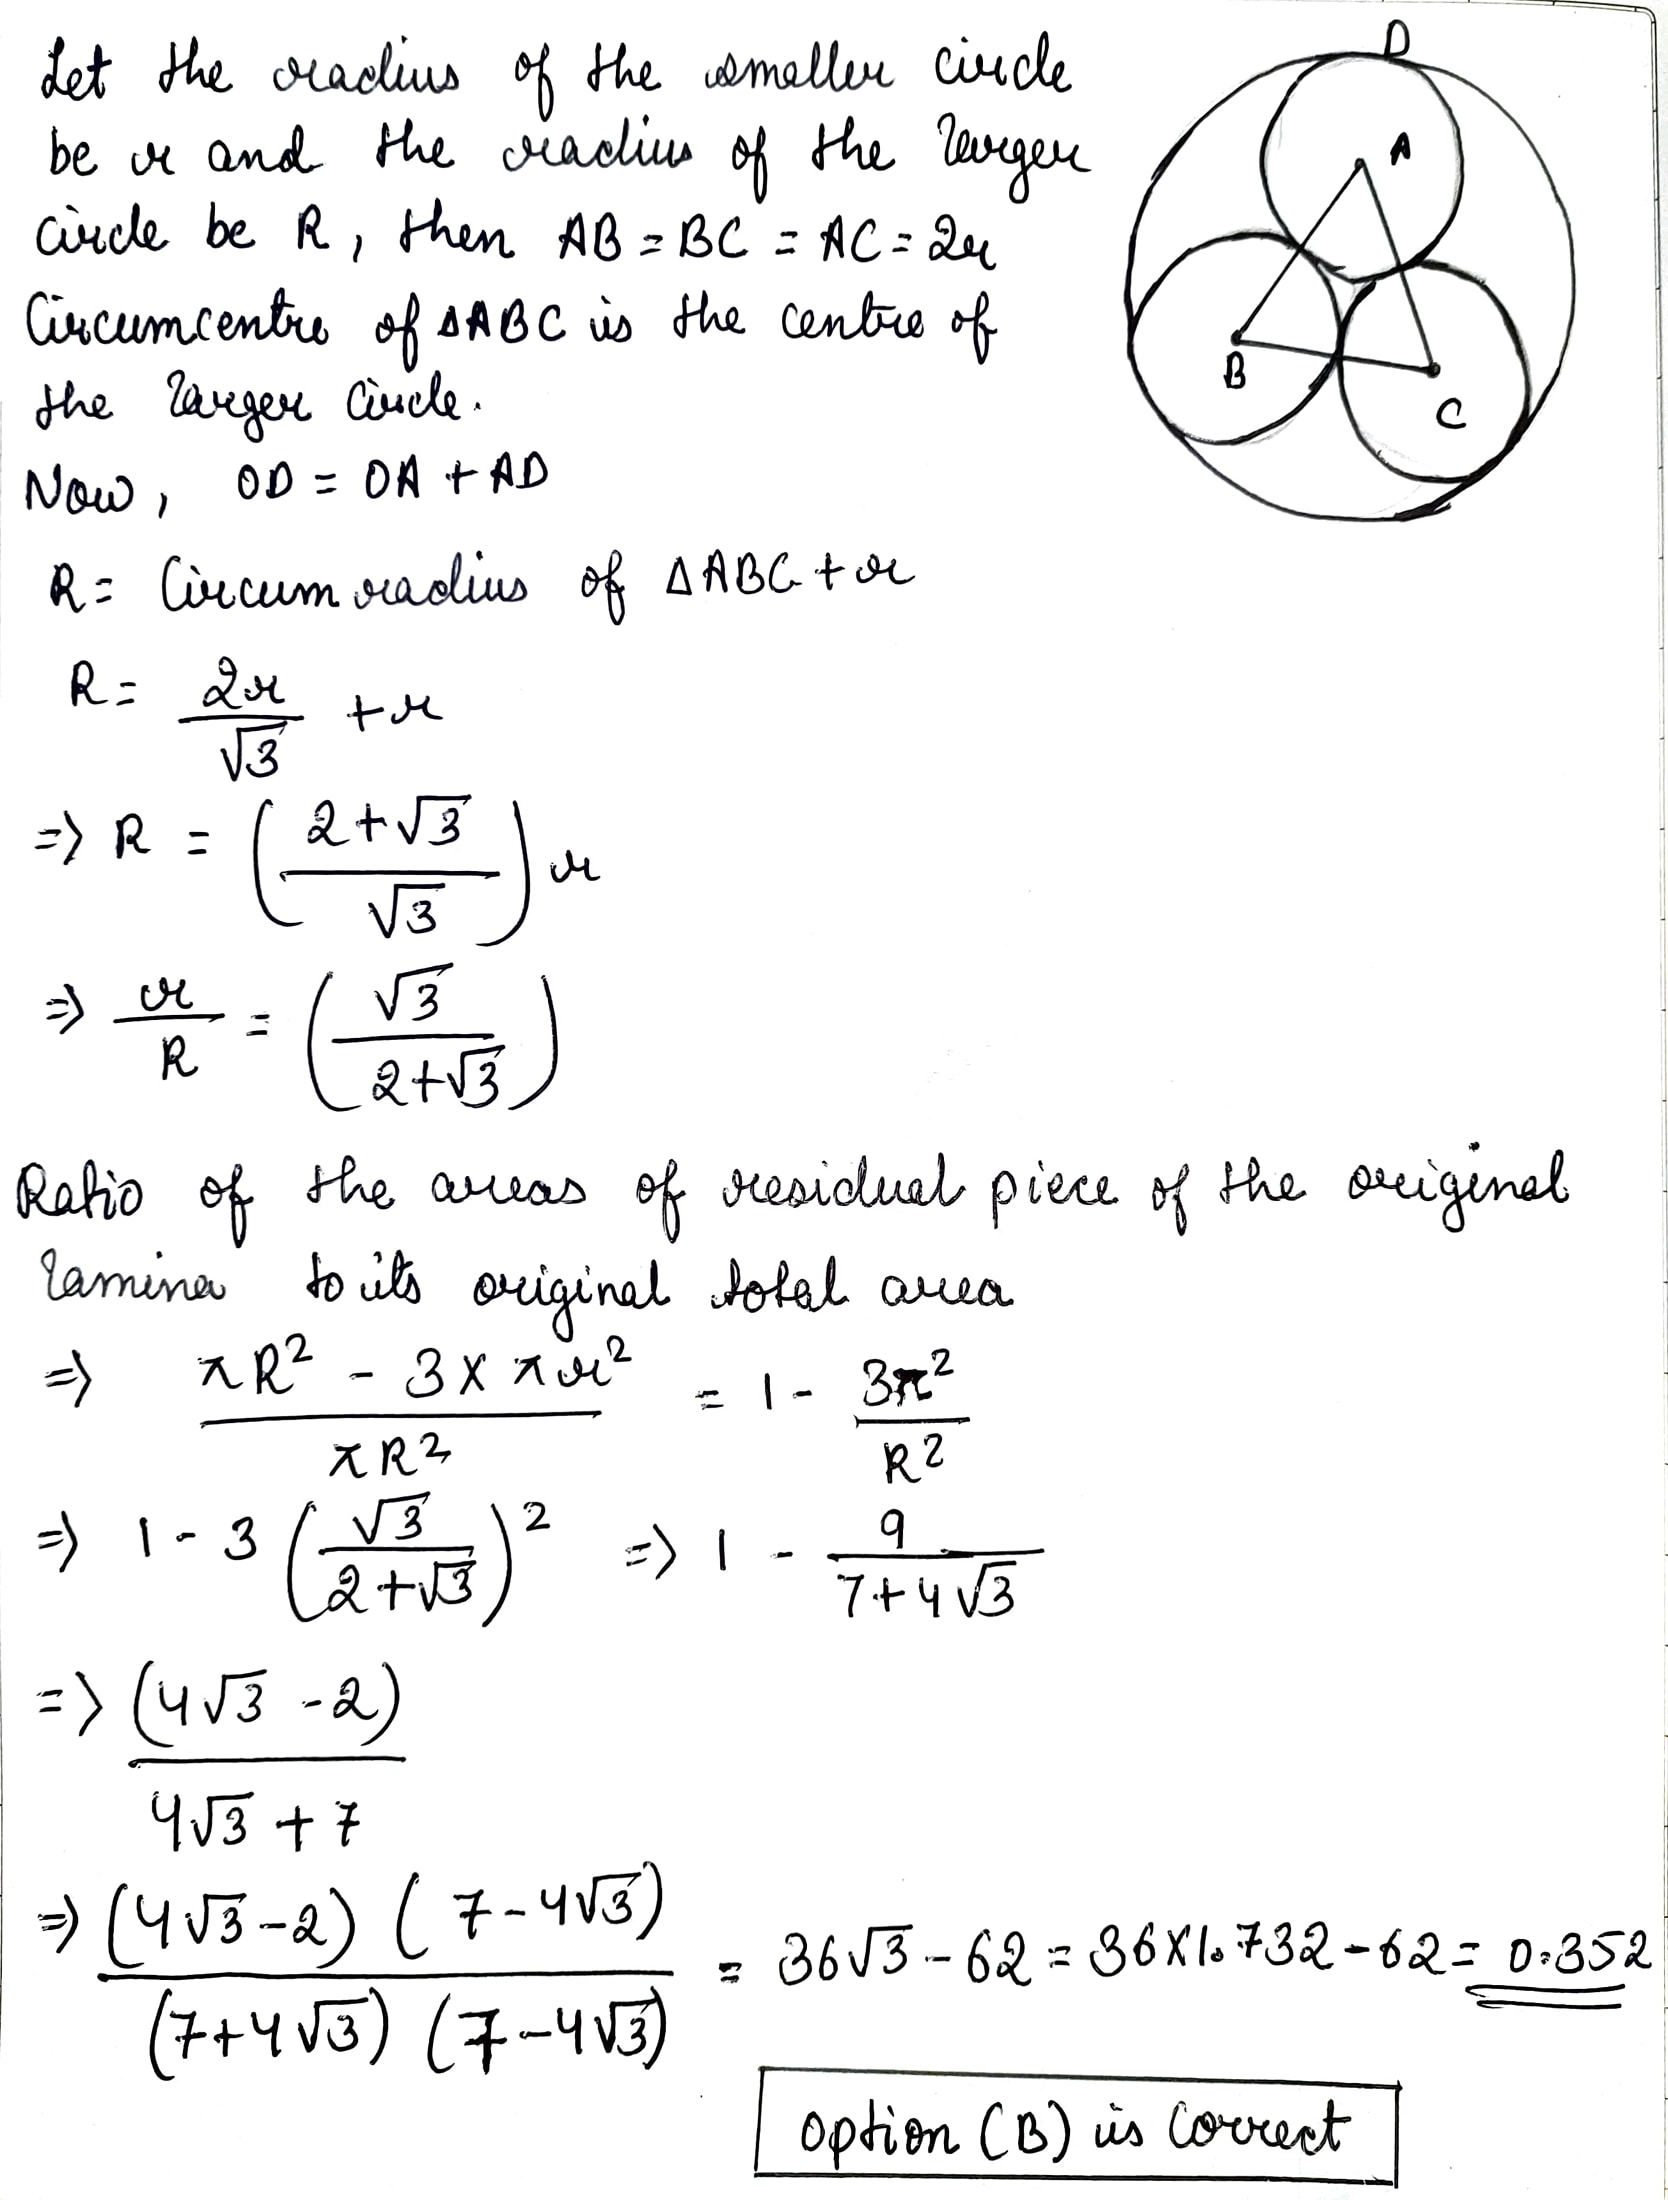 Let the radius of the smaller circle
be r and the radius of the larger
circle be R, then AB = BC = AC = 2r
Circumcentre of ΔABC is the centre of
the larger circle.
Now, OD = OA + AD
R = Circum radius of ΔABC + r
R = 2r/√3 + r
=> R = ((2+√3)/√3) r
=> r/R = (√3/(2+√3))
Ratio of the areas of residual piece of the original
lamina to its original total area
=> (πR² - 3 × πr²)/(πR²) = 1 - 3r²/R²
=> 1 - 3(√3/(2+√3))² => 1 - 9/(7+4√3)
=> (4√3 - 2)/(4√3 + 7)
=> (4√3 - 2)(7 - 4√3)/((7+4√3)(7-4√3)) = 36√3 - 62 = 36×1.732 - 62 = 0.352
Option (B) is Correct
D
A
B
C